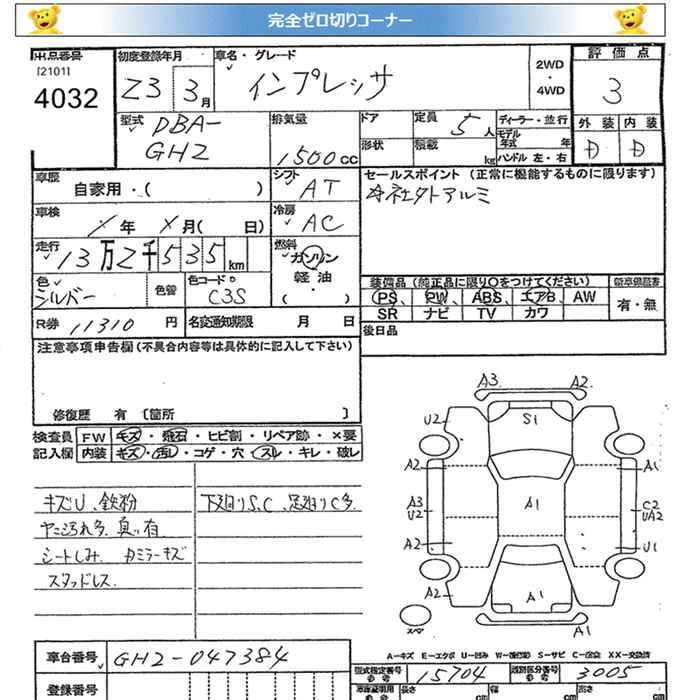 完全ゼロ切りコーナー
出品番号
[2101]
4032
初度登録年月
23 3月
車名・グレード
インプレッサ
2WD
・
4WD
評価点
3
外装 内装
D D
型式
DBA-
GH2
排気量
1500cc
ドア
形状
定員 5人
積載 kg
ディーラー・並行
モデル
年式 年
ハンドル 左・右
車歴
自家用・( )
シフト
AT
セールスポイント (正常に機能するものに限ります)
社外アルミ
車検
年 月( 日)
冷房
AC
走行
13万2千535km
燃料
ガソリン
・
軽油
・
( )
色
シルバー
色替
色コードNo
C3S
装備品 (純正品に限り○をつけてください)
PS、PW、ABS、エアB、AW
SR ナビ TV カワ
新車保証書
有・無
R券 11310円
名変通知期限 月 日
後日品
注意事項申告欄(不具合内容等は具体的に記入して下さい)
修復歴 有 〔箇所 〕
検査員
記入欄
FW キズ・飛石・ヒビ割・リペア跡・×要
内装 キズ・汚レ・コゲ・穴・スレ・キレ・破レ
キズU、鉄粉
ヤニ汚れ多、臭い有
シートしみ、カミラーキズ
スタッドレス.
下廻りS、C、足廻りC多
A3 A2
U2
S1
A2
A1
A3
U2
A1
C2
UA2
A2
U1
A2
A1
A1
スペア
A-キズ E-エクボ U-凹み W-(補修跡) S-サビ C-腐食 XX-交換済
車台番号
GH2-047384
登録番号
型式指定番号
参考
15704
類別区分番号
参考
3005
車庫証明用
参考
長さ
cm
幅
cm
高さ
cm